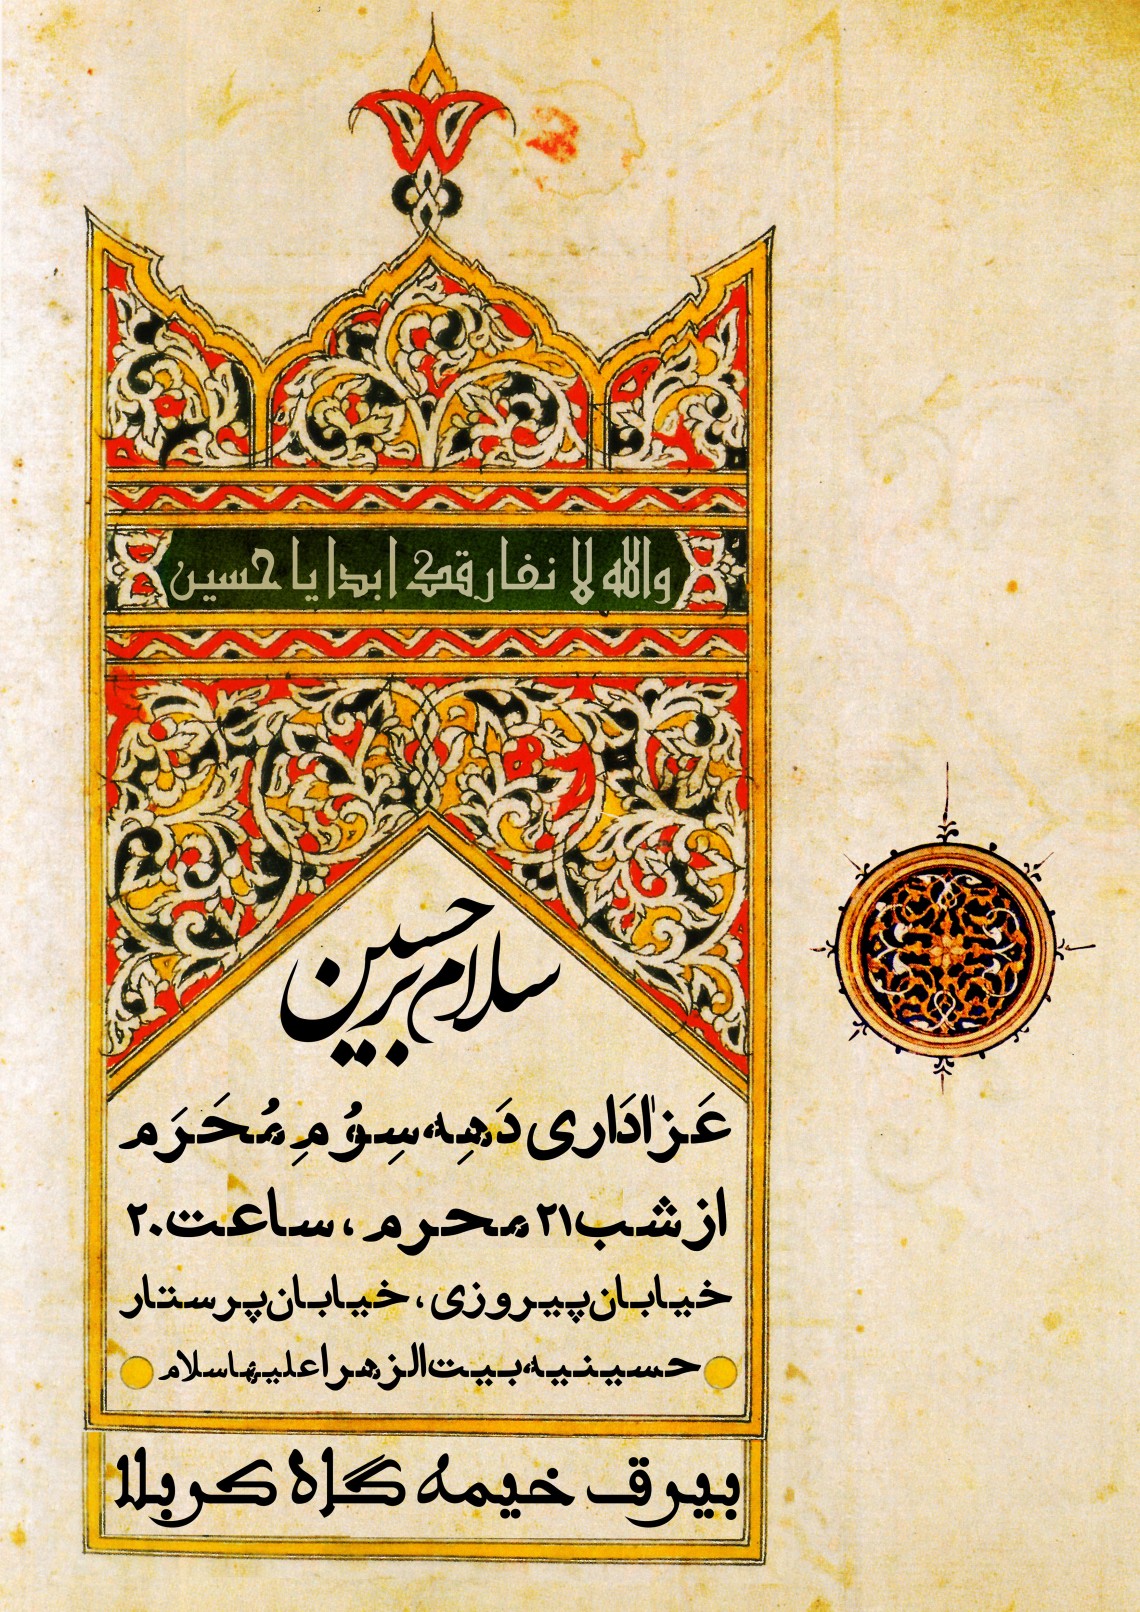 والله لا نفارقك ابدا يا حسين
سلام بر حسین
عَزاٰدَاری دَهِه سِوُمِ مُحَرَم
از شب ۲۱ محرم، ساعت ۲۰
خیابان پیروزی، خیابان پرستار
حسینیه بیت الزهرا علیها سلام
بیرق خیمه گاه کربلا